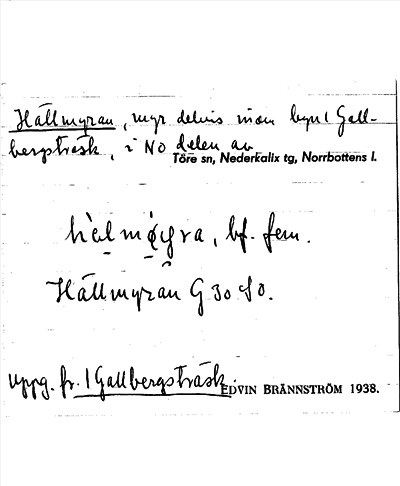 Hällmyran, myr delvis inom byn 1 Gall-
bergsträsk, i NO delen av
Töre sn, Nederkalix tg, Norrbottens l.
bf. fem.
Hällmyran G 30 SO.
Uppg. fr. 1 Gallbergsträsk.
EDVIN BRÄNNSTRÖM 1938.